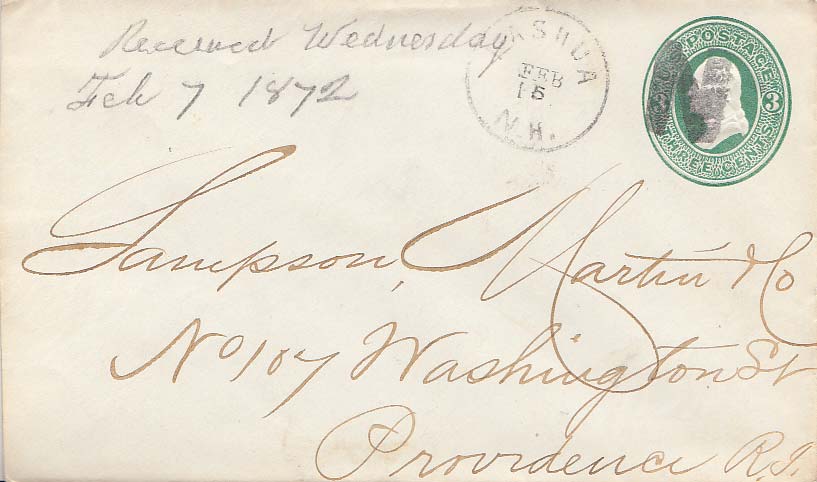 Received Wednesday
Feb 7 1872
NASHUA
FEB
15
N.H.
U.S. POSTAGE
3
THREE CENTS
Sampson, Martin & Co
No 107 Washington St
Providence R.I.